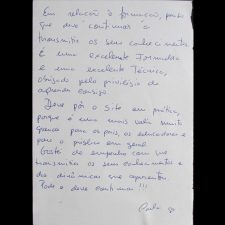 Em relação à formação, penso
que deve continuar a
transmitir os seus conhecimentos
É uma excelente Formadora
e uma excelente Técnica,
obrigado pelo privilégio de
aprender consigo.
Deve pôr o site em prática,
porque é uma mais valia muito
grande para os pais, os educadores e
para o público em geral
Gosto do empenho com que
transmitiu os seus conhecimentos e
das dinâmicas que apresentou.
Pode e deve continuar!!!
Paula